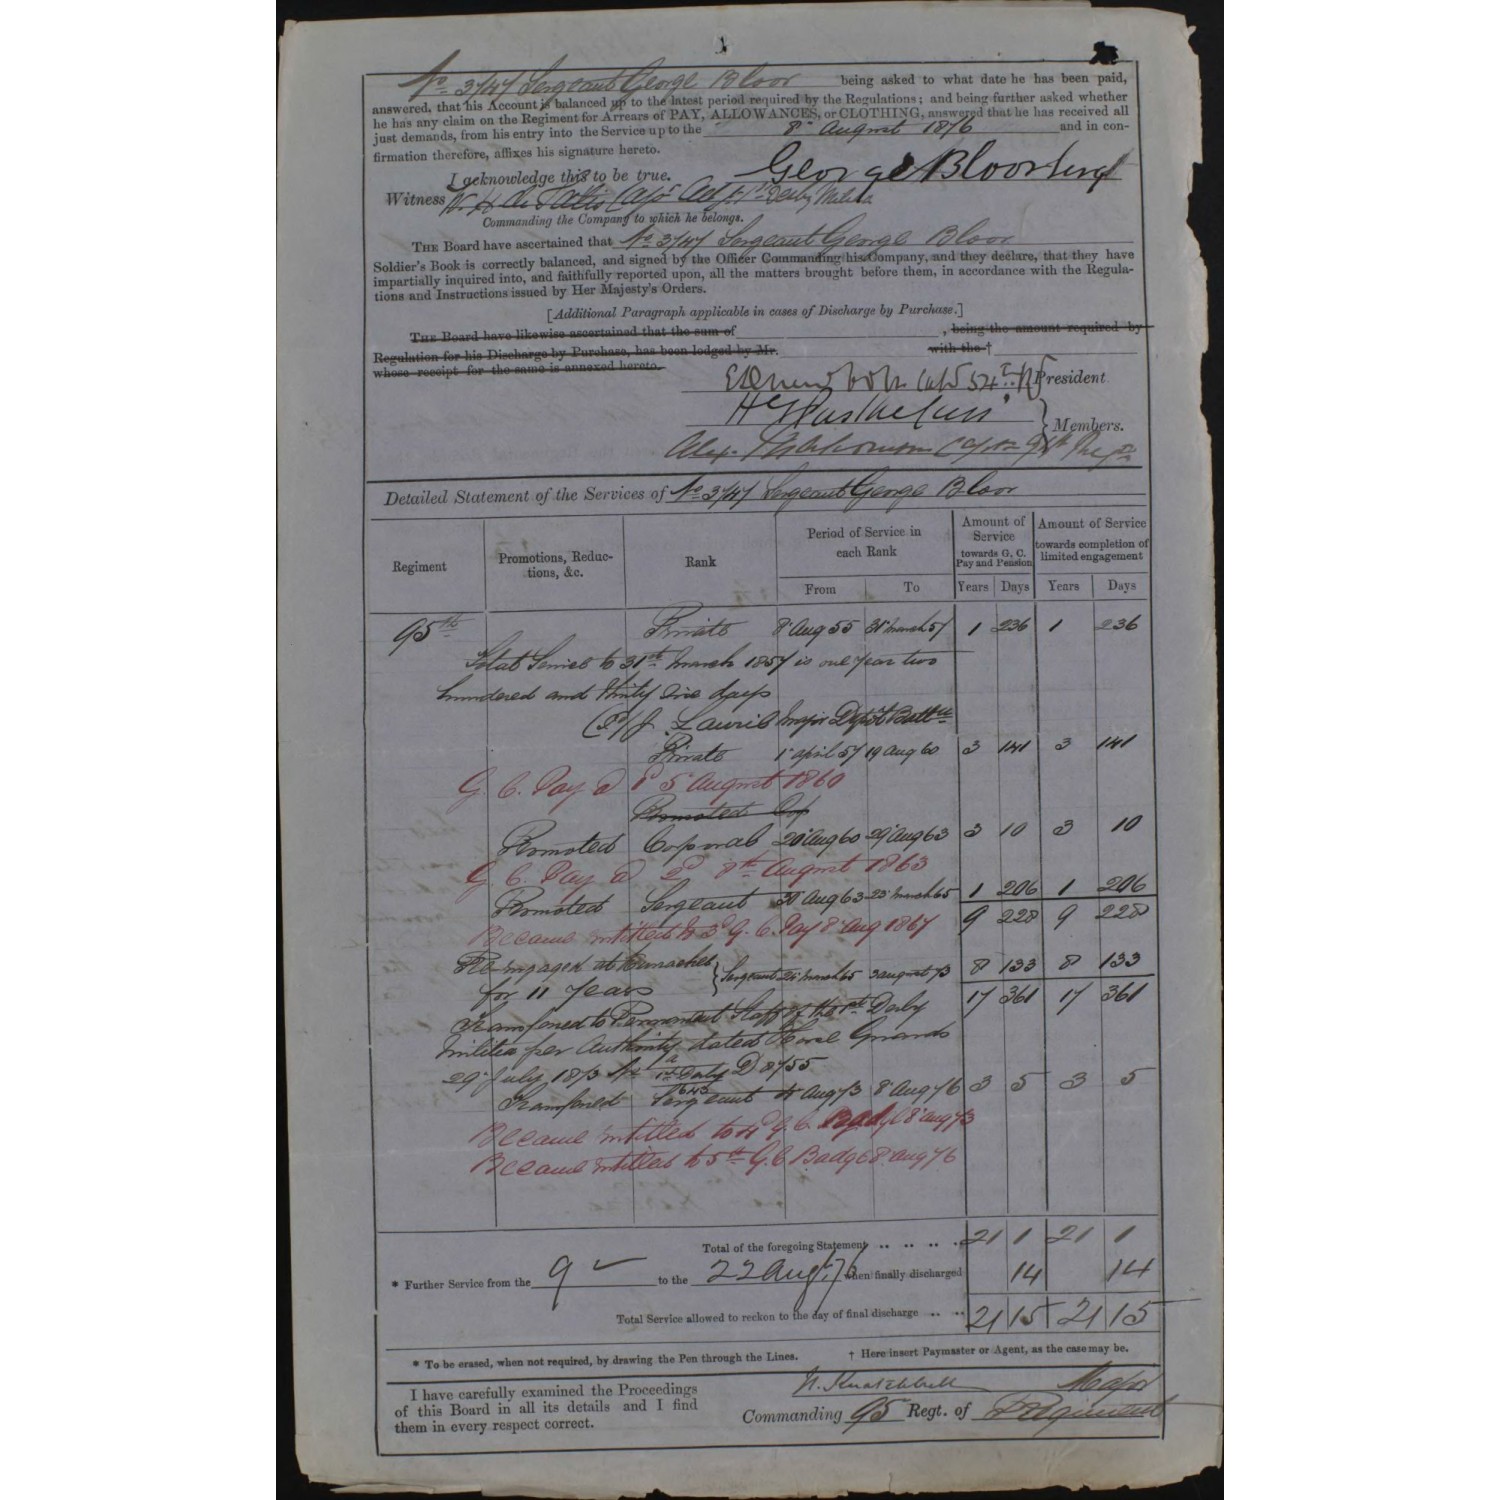 No 3747 Sergeant George Bloor being asked to what date he has been paid,
answered, that his Account is balanced up to the latest period required by the Regulations; and being further asked whether
he has any claim on the Regiment for Arrears of PAY, ALLOWANCES, or CLOTHING, answered that he has received all
just demands, from his entry into the Service up to the 8th August 1876 and in con-
firmation therefore, affixes his signature hereto.
George Bloor Sergt
I acknowledge this to be true.
Witness Capt Adjt 1st Derby Militia
Commanding the Company to which he belongs.
THE Board have ascertained that No 3747 Sergeant George Bloor
Soldier's Book is correctly balanced, and signed by the Officer Commanding his Company, and they declare, that they have
impartially inquired into, and faithfully reported upon, all the matters brought before them, in accordance with the Regula-
tions and Instructions issued by Her Majesty's Orders.
[Additional Paragraph applicable in cases of Discharge by Purchase.]
THE Board have likewise ascertained that the sum of , being the amount required by
Regulation for his Discharge by Purchase, has been lodged by Mr. with the †
whose receipt for the same is annexed hereto.
Capt 54th President
Members.
Alex. Capt
Detailed Statement of the Services of No 3747 Sergeant George Bloor
Regiment Promotions, Reduc-tions, &c. Rank Period of Service in each Rank Amount of Service towards G. C. Pay and Pension Amount of Service towards completion of limited engagement
From To Years Days Years Days
95th Private 8 Aug 55 31 March 57 1 236 1 236
Total Service to 31st March 1857 is one year two
hundred and thirty six days
J. Laurie Major Depôt Battn
Private 1 April 57 19 Aug 60 3 141 3 141
G. C. Pay @ 1d 5 August 1860
Promoted Cop
Promoted Corporal 20 Aug 60 29 Aug 63 3 10 3 10
G. C. Pay @ 2d 8th August 1863
Promoted Sergeant 30 Aug 63 23 March 65 1 206 1 206
9 228 9 228
Became entitled to 3d G. C. Pay 8 Aug 1867
Re-engaged at
for 11 Years Sergeant 24 March 65 3 August 73 8 133 8 133
17 361 17 361
Transfered to Permanent Staff of the 1st Derby
Militia per Authority dated Horse Guards
29 July 1873 No a 1st Derby D 8755
643
Transfered Sergeant 4 Aug 73 8 Aug 76 3 5 3 5
Became entitled to 4th G. C. Badge 8 Aug 73
Became entitled to 5th G. C. Badge 8 Aug 76
Total of the foregoing Statement .. .. .. .. 21 1 21 1
* Further Service from the 9 to the 22 Augt 76 when finally discharged 14 14
Total Service allowed to reckon to the day of final discharge .. .. 21 15 21 15
* To be erased, when not required, by drawing the Pen through the Lines. † Here insert Paymaster or Agent, as the case may be.
I have carefully examined the Proceedings
of this Board in all its details and I find
them in every respect correct.
Knatchbull Major
Commanding 95 Regt. of